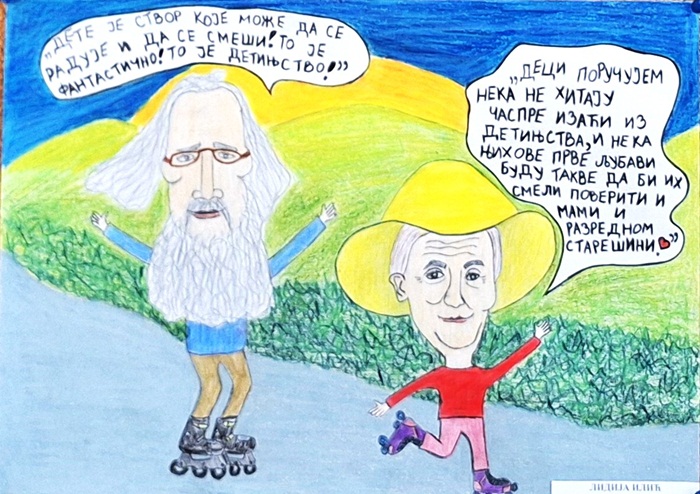 „ДЕТЕ ЈЕ СТВОР КОЈЕ МОЖЕ ДА СЕ
РАДУЈЕ И ДА СЕ СМЕШИ! ТО ЈЕ
ФАНТАСТИЧНО! ТО ЈЕ ДЕТИЊСТВО!”
„ДЕЦИ ПОРУЧУЈЕМ
НЕКА НЕ ХИТАЈУ
ЧАСПРЕ ИЗАЋИ ИЗ
ДЕТИЊСТВА, И НЕКА
ЊИХОВЕ ПРВЕ ЉУБАВИ
БУДУ ТАКВЕ ДА БИ ИХ
СМЕЛИ ПОВЕРИТИ И
МАМИ И
РАЗРЕДНОМ
СТАРЕШИНИ.”
ЛИДИЈА ИЛИЋ